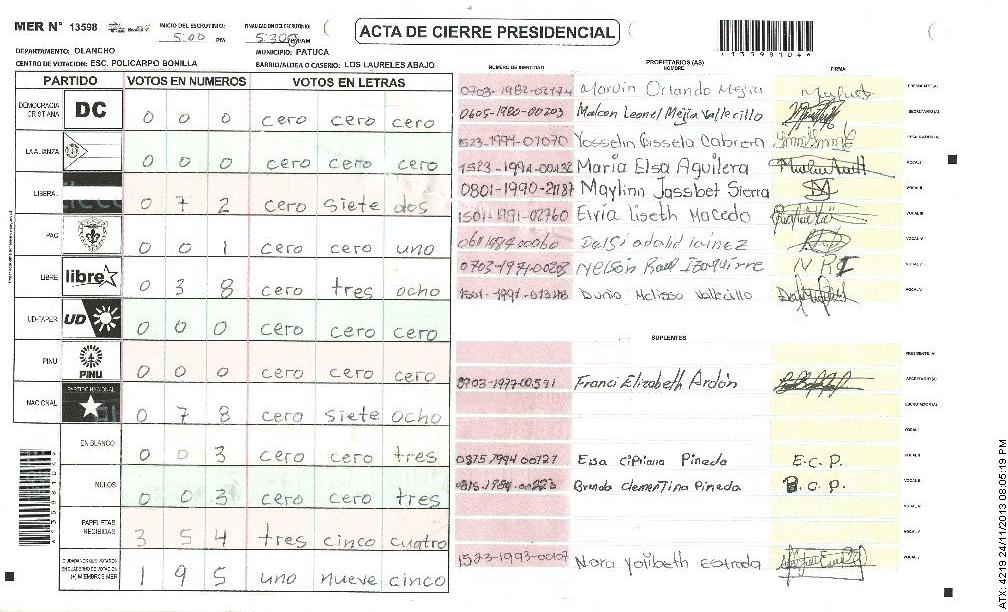 MER N° 13598
INICIO DEL ESCRUTINIO: 5:00 PM
FINALIZACION DEL ESCRUTINIO: 5:30
ACTA DE CIERRE PRESIDENCIAL
DEPARTAMENTO: OLANCHO
MUNICIPIO: PATUCA
CENTRO DE VOTACION: ESC. POLICARPO BONILLA
BARRIO/ALDEA O CASERIO: LOS LAURELES ABAJO
PARTIDO VOTOS EN NUMEROS VOTOS EN LETRAS
DEMOCRACIA CRISTIANA DC 0 0 0 cero cero cero
LA ALIANZA 0 0 0 cero cero cero
LIBERAL 0 7 2 cero siete dos
PAC 0 0 1 cero cero uno
LIBRE libre 0 3 8 cero tres ocho
UD-FAPER UD 0 0 0 cero cero cero
PINU PINU 0 0 0 cero cero cero
NACIONAL PARTIDO NACIONAL 0 7 8 cero siete ocho
EN BLANCO 0 0 3 cero cero tres
NULOS 0 0 3 cero cero tres
PAPELETAS RECIBIDAS 3 5 4 tres cinco cuatro
CIUDADANOS QUE VOTARON EN CUADERNO DE VOTACION (+) MIEMBROS MER 1 9 5 uno nueve cinco
PROPIETARIOS (AS)
NUMERO DE IDENTIDAD NOMBRE FIRMA
0703-1982-02174 Marvin Orlando Mejia PRESIDENTE(A)
0605-1980-00203 Malcon Leonel Mejia Vallecillo SECRETARIO(A)
1523-1994-01070 Yosselin Gissela Cabrera ESCRUTADOR(A)
1523-1991-00132 Maria Elsa Aguilera VOCAL I
0801-1990-21187 Maylinn Jassbet Sierra VOCAL II
1501-1991-02760 Elvia liseth Macedo VOCAL III
0611198400060 VOCAL IV
Nelson Raul Izaguirre N R I VOCAL V
Melissa Vallecillo VOCAL VI
SUPLENTES
PRESIDENTE(A)
0703-1977-00531 Franci Elizabeth Ardón SECRETARIO(A)
ESCRUTADOR(A)
VOCAL I
Elsa Cipriana Pineda E.C.P. VOCAL II
Brenda Clementina Pineda B.C.P. VOCAL III
1523-1993-00107 Nora Yolibeth Estrada
ATX: 4219 24/11/2013 08:05:19 PM